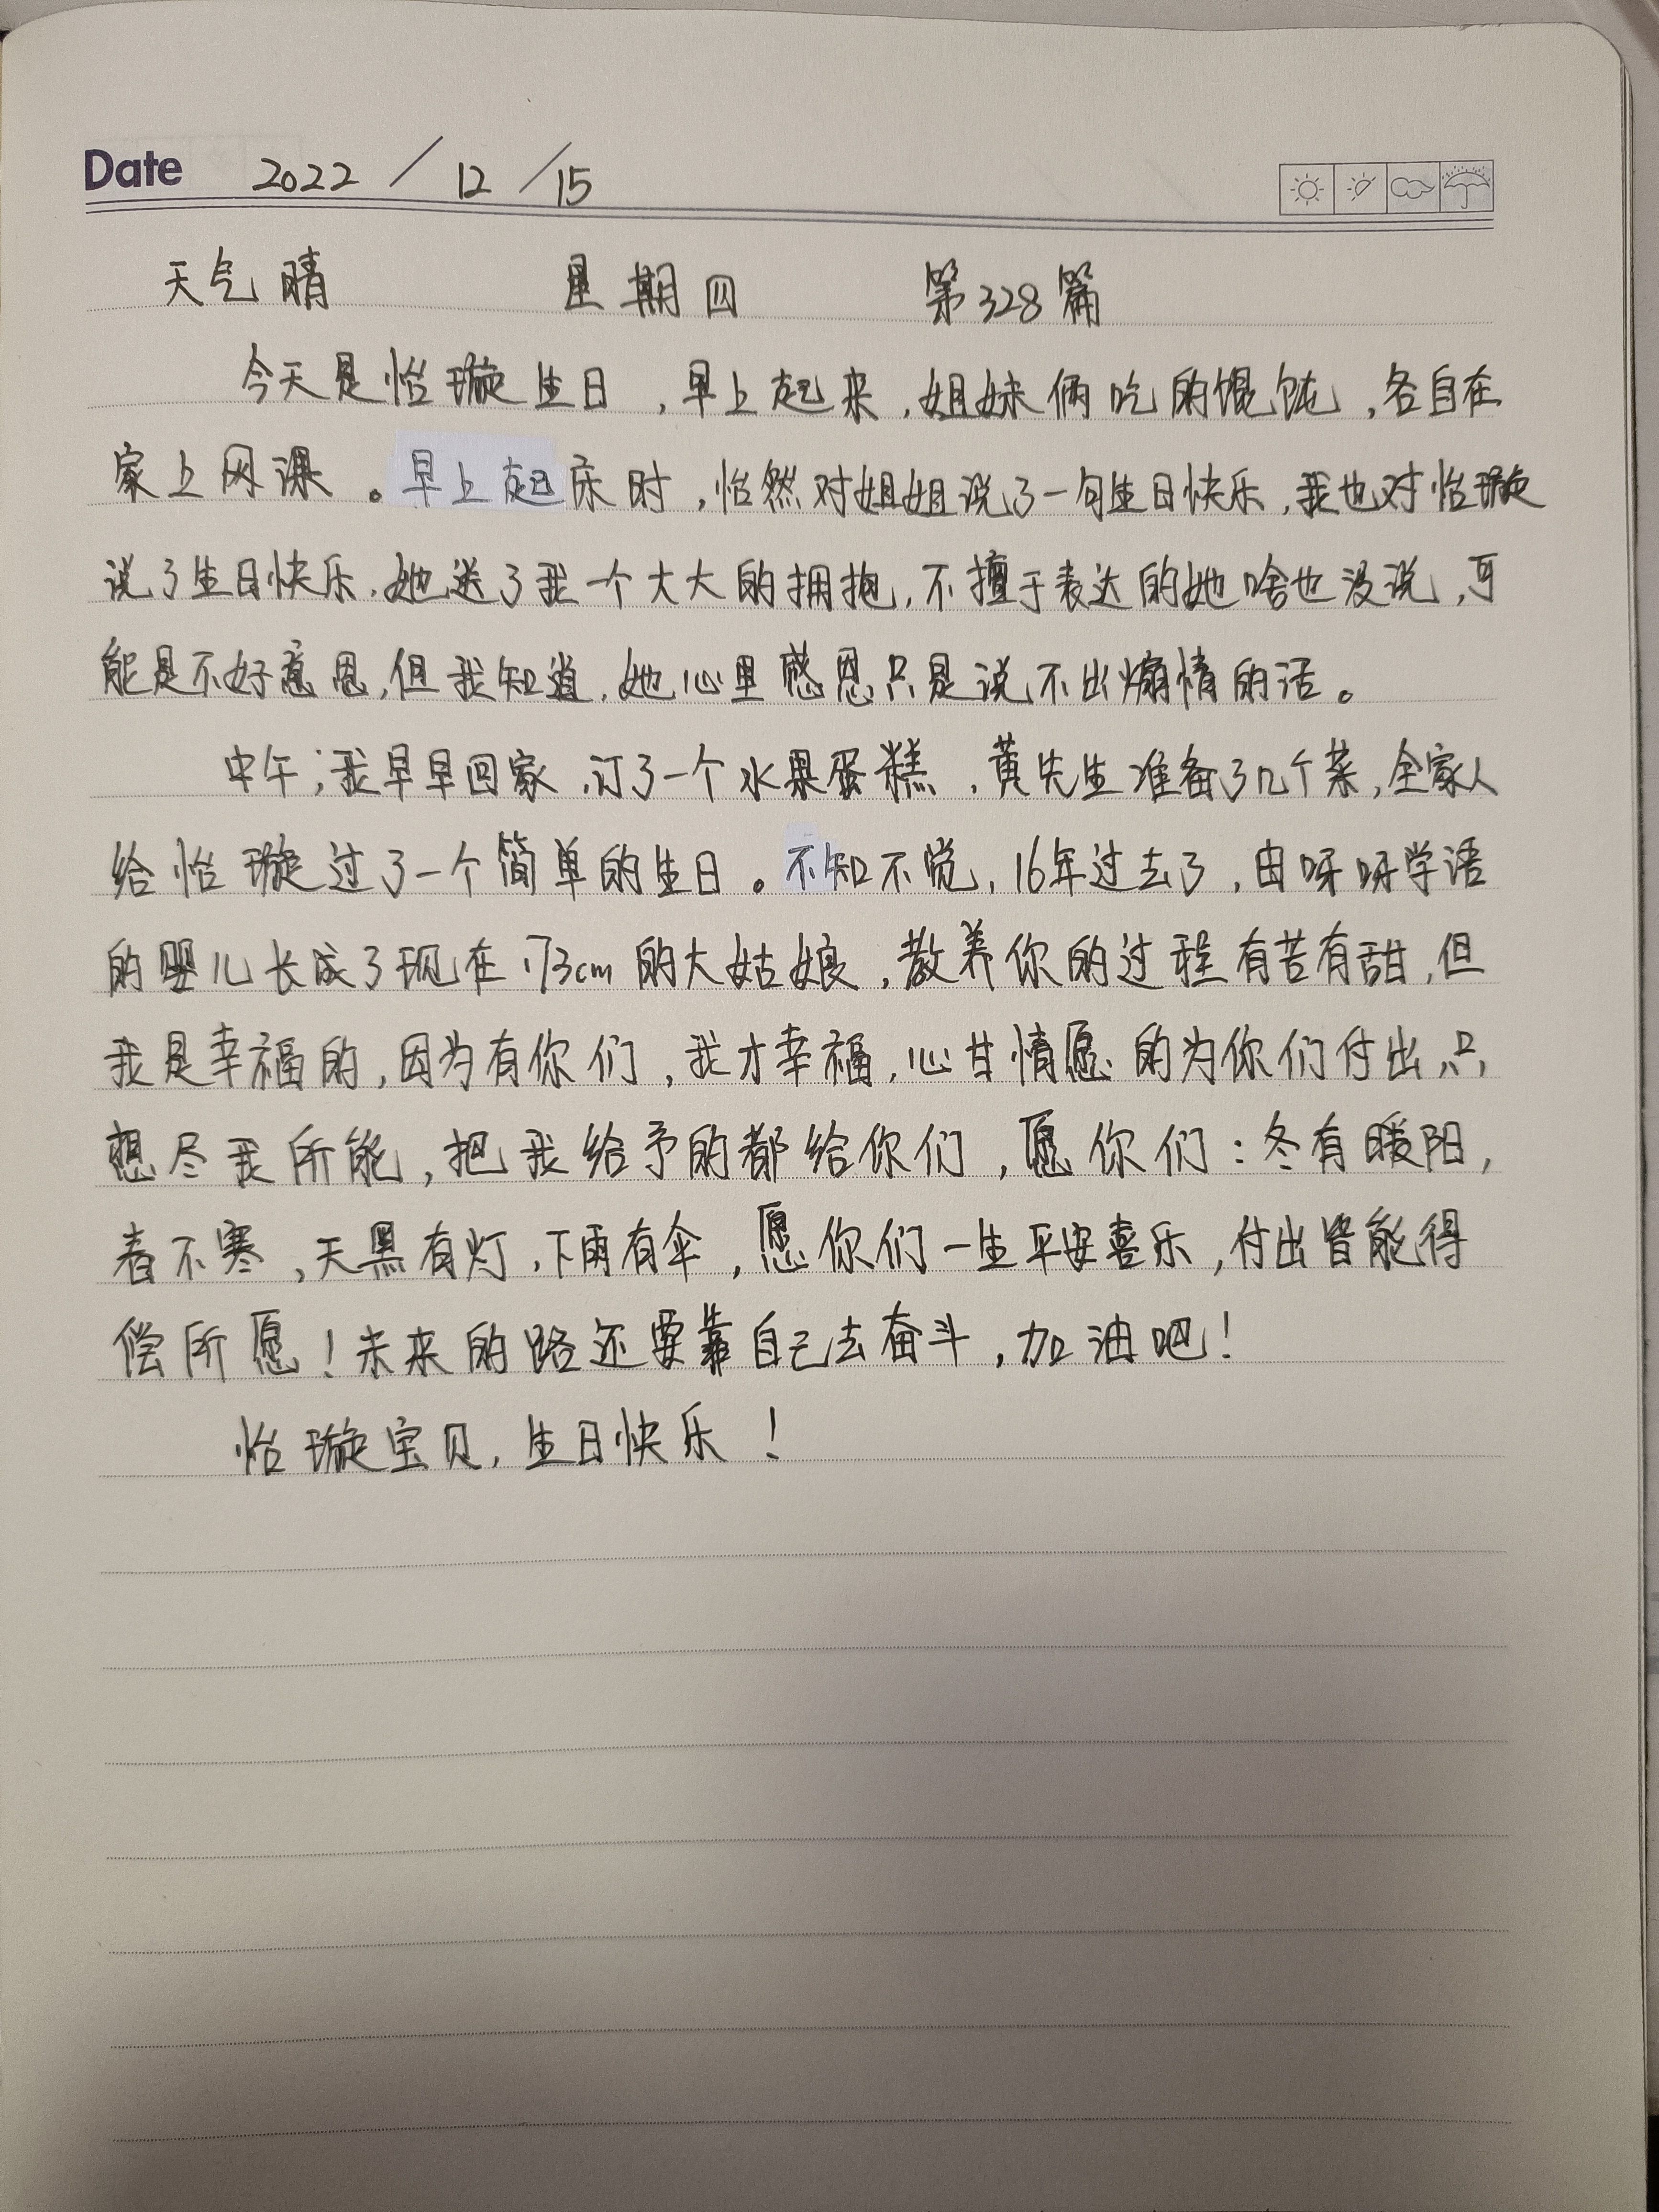 Date 2022 / 12 / 15
天气晴 星期四 第328篇
今天是怡璇生日，早上起来，姐妹俩吃的馄饨，各自在
家上网课。早上起床时，怡然对姐姐说了一句生日快乐，我也对怡璇
说了生日快乐，她送了我一个大大的拥抱，不擅于表达的她啥也没说，可
能是不好意思，但我知道，她心里感恩只是说不出煽情的话。
中午；我早早回家，订了一个水果蛋糕，黄先生准备了几个菜，全家人
给怡璇过了一个简单的生日。不知不觉，16年过去了，由呀呀学语
的婴儿长成了现在173cm的大姑娘，教养你的过程有苦有甜，但
我是幸福的，因为有你们，我才幸福，心甘情愿的为你们付出，只，
想尽我所能，把我给予的都给你们，愿你们：冬有暖阳，
春不寒，天黑有灯，下雨有伞，愿你们一生平安喜乐，付出皆能得
偿所愿！未来的路还要靠自己去奋斗，加油吧！
怡璇宝贝，生日快乐！